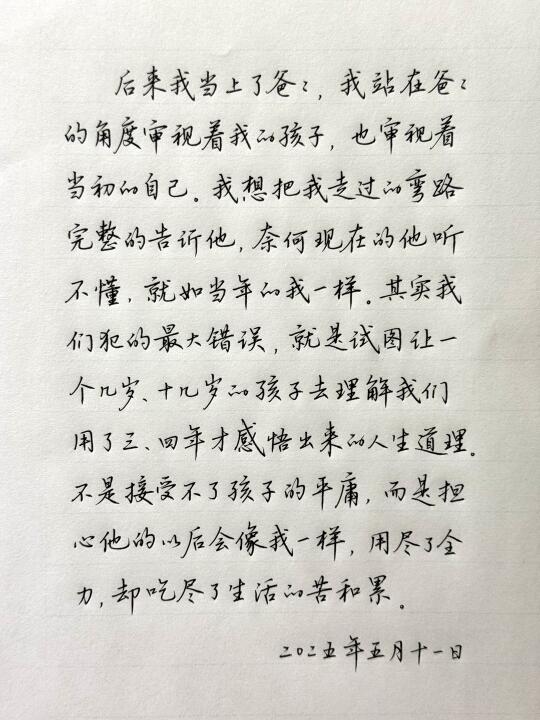 后来我当上了爸〻，我站在爸〻
的角度审视着我的孩子，也审视着
当初的自己。我想把我走过的弯路
完整的告诉他，奈何现在的他听
不懂，就如当年的我一样。其实我
们犯的最大错误，就是试图让一
个几岁、十几岁的孩子去理解我们
用了三、四年才感悟出来的人生道理。
不是接受不了孩子的平庸，而是担
心他的以后会像我一样，用尽了全
力，却吃尽了生活的苦和累。
二〇二五年五月十一日